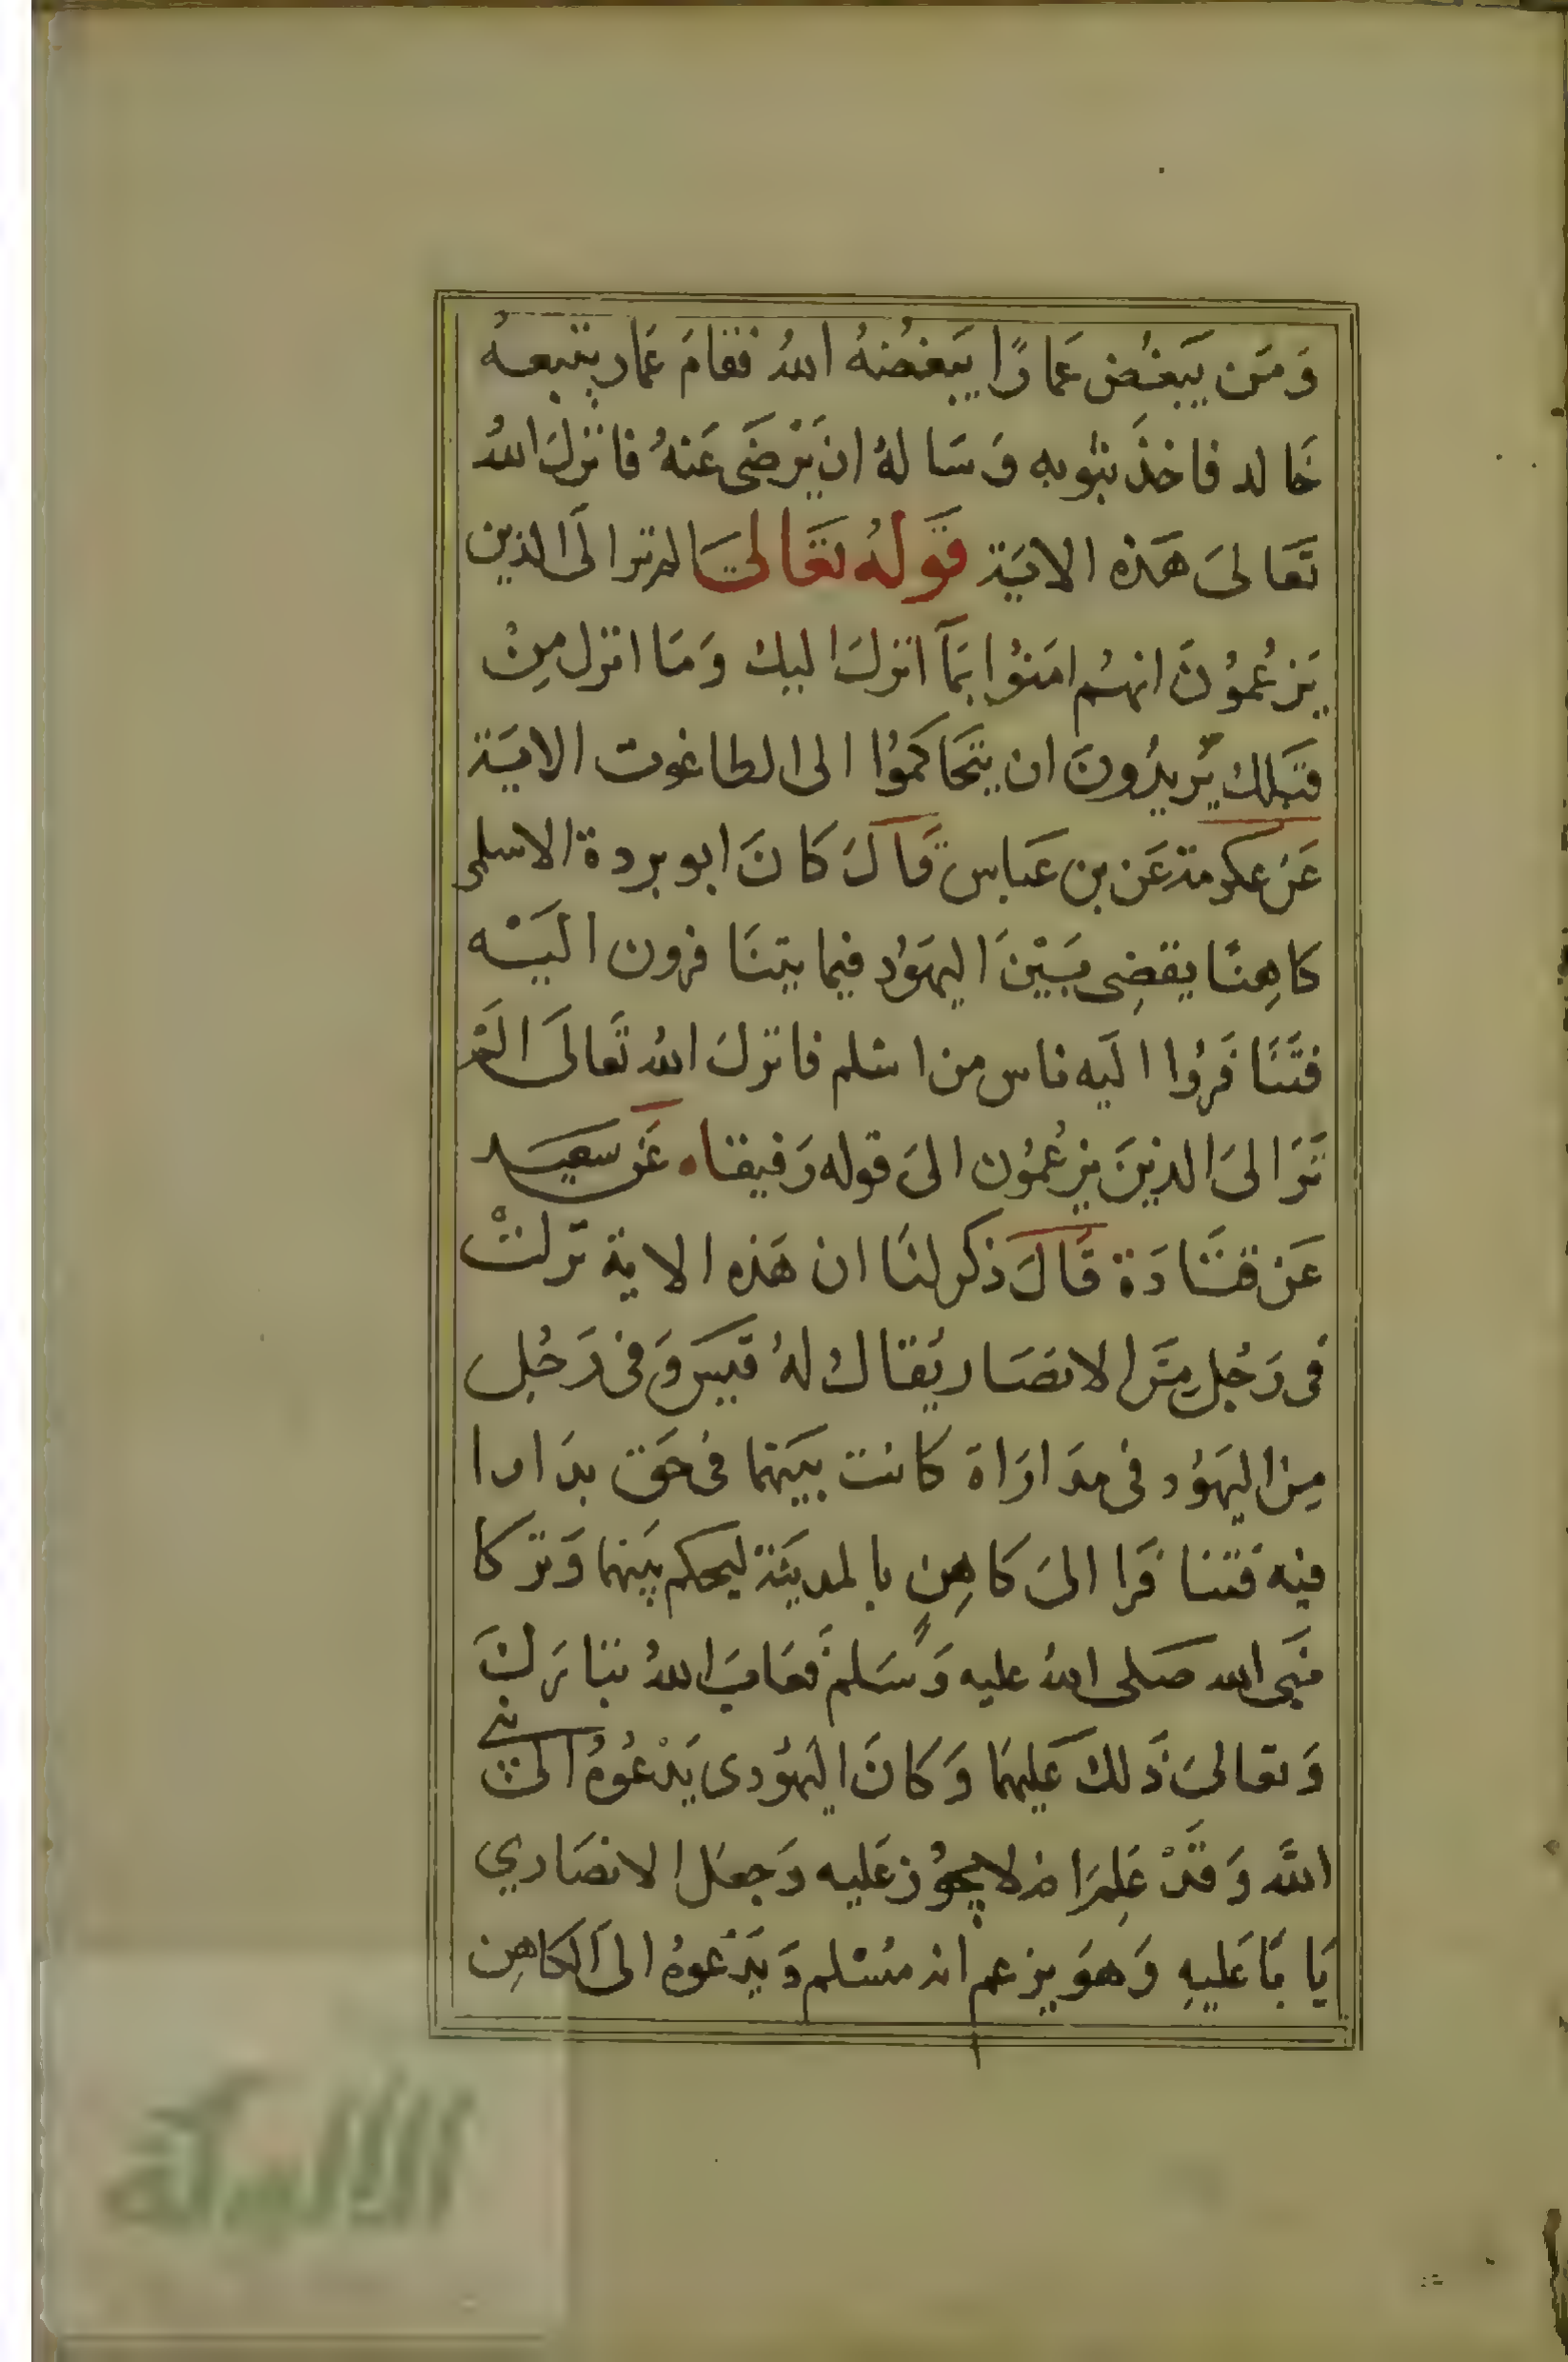 وَمَن يَبغُض عَمارًا يَبغضهُ اللهُ فقامَ عَمار يتبعهُ
خَالد فاخذَ بثوبه وَسَالهُ ان يَرْضَى عَنهُ فانزلَ اللهُ
تَعَالىَ هَذه الايَة قَولهُ تعَالىَ الم تر الَى الذين
يَزعُمُونَ انهُم امَنوُا بمَآ انزلَ اليك وَمَا انزل مِنْ
قبَلك يُريدُونَ ان يتحَاكمَوُا الى الطاغوت الايَة
عَن عكرمة عَن بن عَباس قالَ كانَ ابو بردة الاسلمى
كاهِنًا يقضِى بَيْنَ اليهَوُد فيما يتنَافرون اليَه
فتَنَافَرُوا اليَه ناس من اسْلم فانزلَ اللهُ تَعالَى الَمْ
تَرَ الىَ الذينَ يزعُمُون الىَ قوله رَفيقا ه عَن سعيَد
عَن قتَادَة قَالَ ذكر لنَا ان هَذه الاية نزلتْ
فى رَجُل مِنَ الانصَار يُقالُ لهُ قَيس وَفى رَجُل
مِن اليهَوُد فى مدَارَاة كانت بيَنهما فى حَق بدَارا
فيه فتنافَرا الىَ كاهِنٍ بالمدينَة ليحكم بيَنهما وَتركا
نبَى الله صَلى اللهُ عليه وَسَلم فعَابَ اللهُ تبَاركَ
وَتعالىَ ذَلكَ عَليهمَا وَكانَ اليهَوُدى يَدْعُوهُ الىَ نبى
اللَّه وَقدْ عَلِمَ انه لا يجوُز عَليه وَجعَل الانصَاري
يَابَا عَليهِ وَهوَ يزعم انه مُسْلم وَيَدْعوهُ الىَ الكاهِن
الألوكة